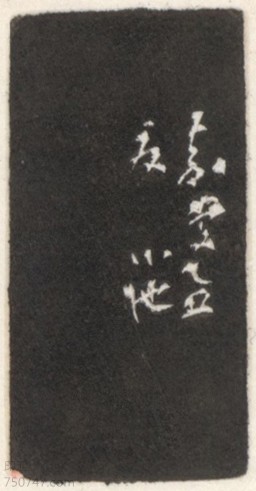 嘉慶乙丑
夏小池
750747.com